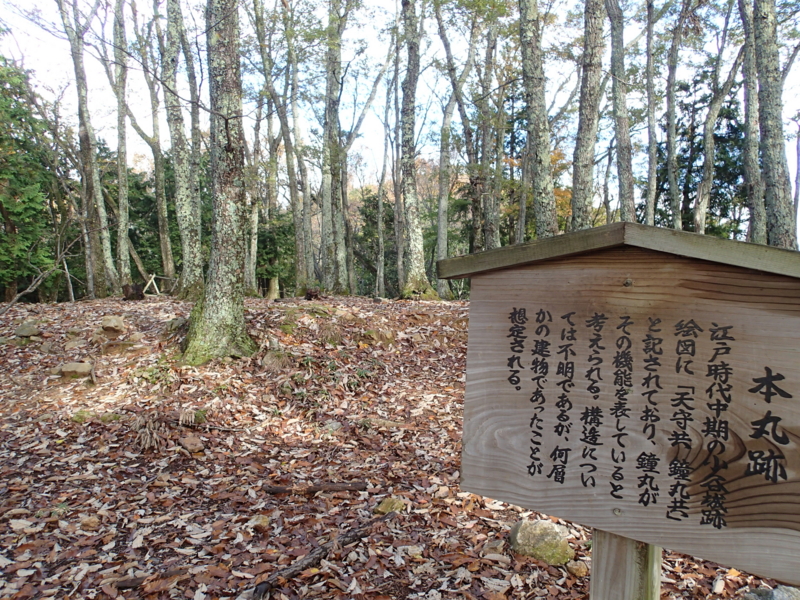 本丸跡
江戸時代中期の小谷城跡
絵図に「天守共、鐘丸共」
と記されており、鐘丸が
その機能を表していると
考えられる。構造につい
ては不明であるが、何層
かの建物であったことが
想定される。